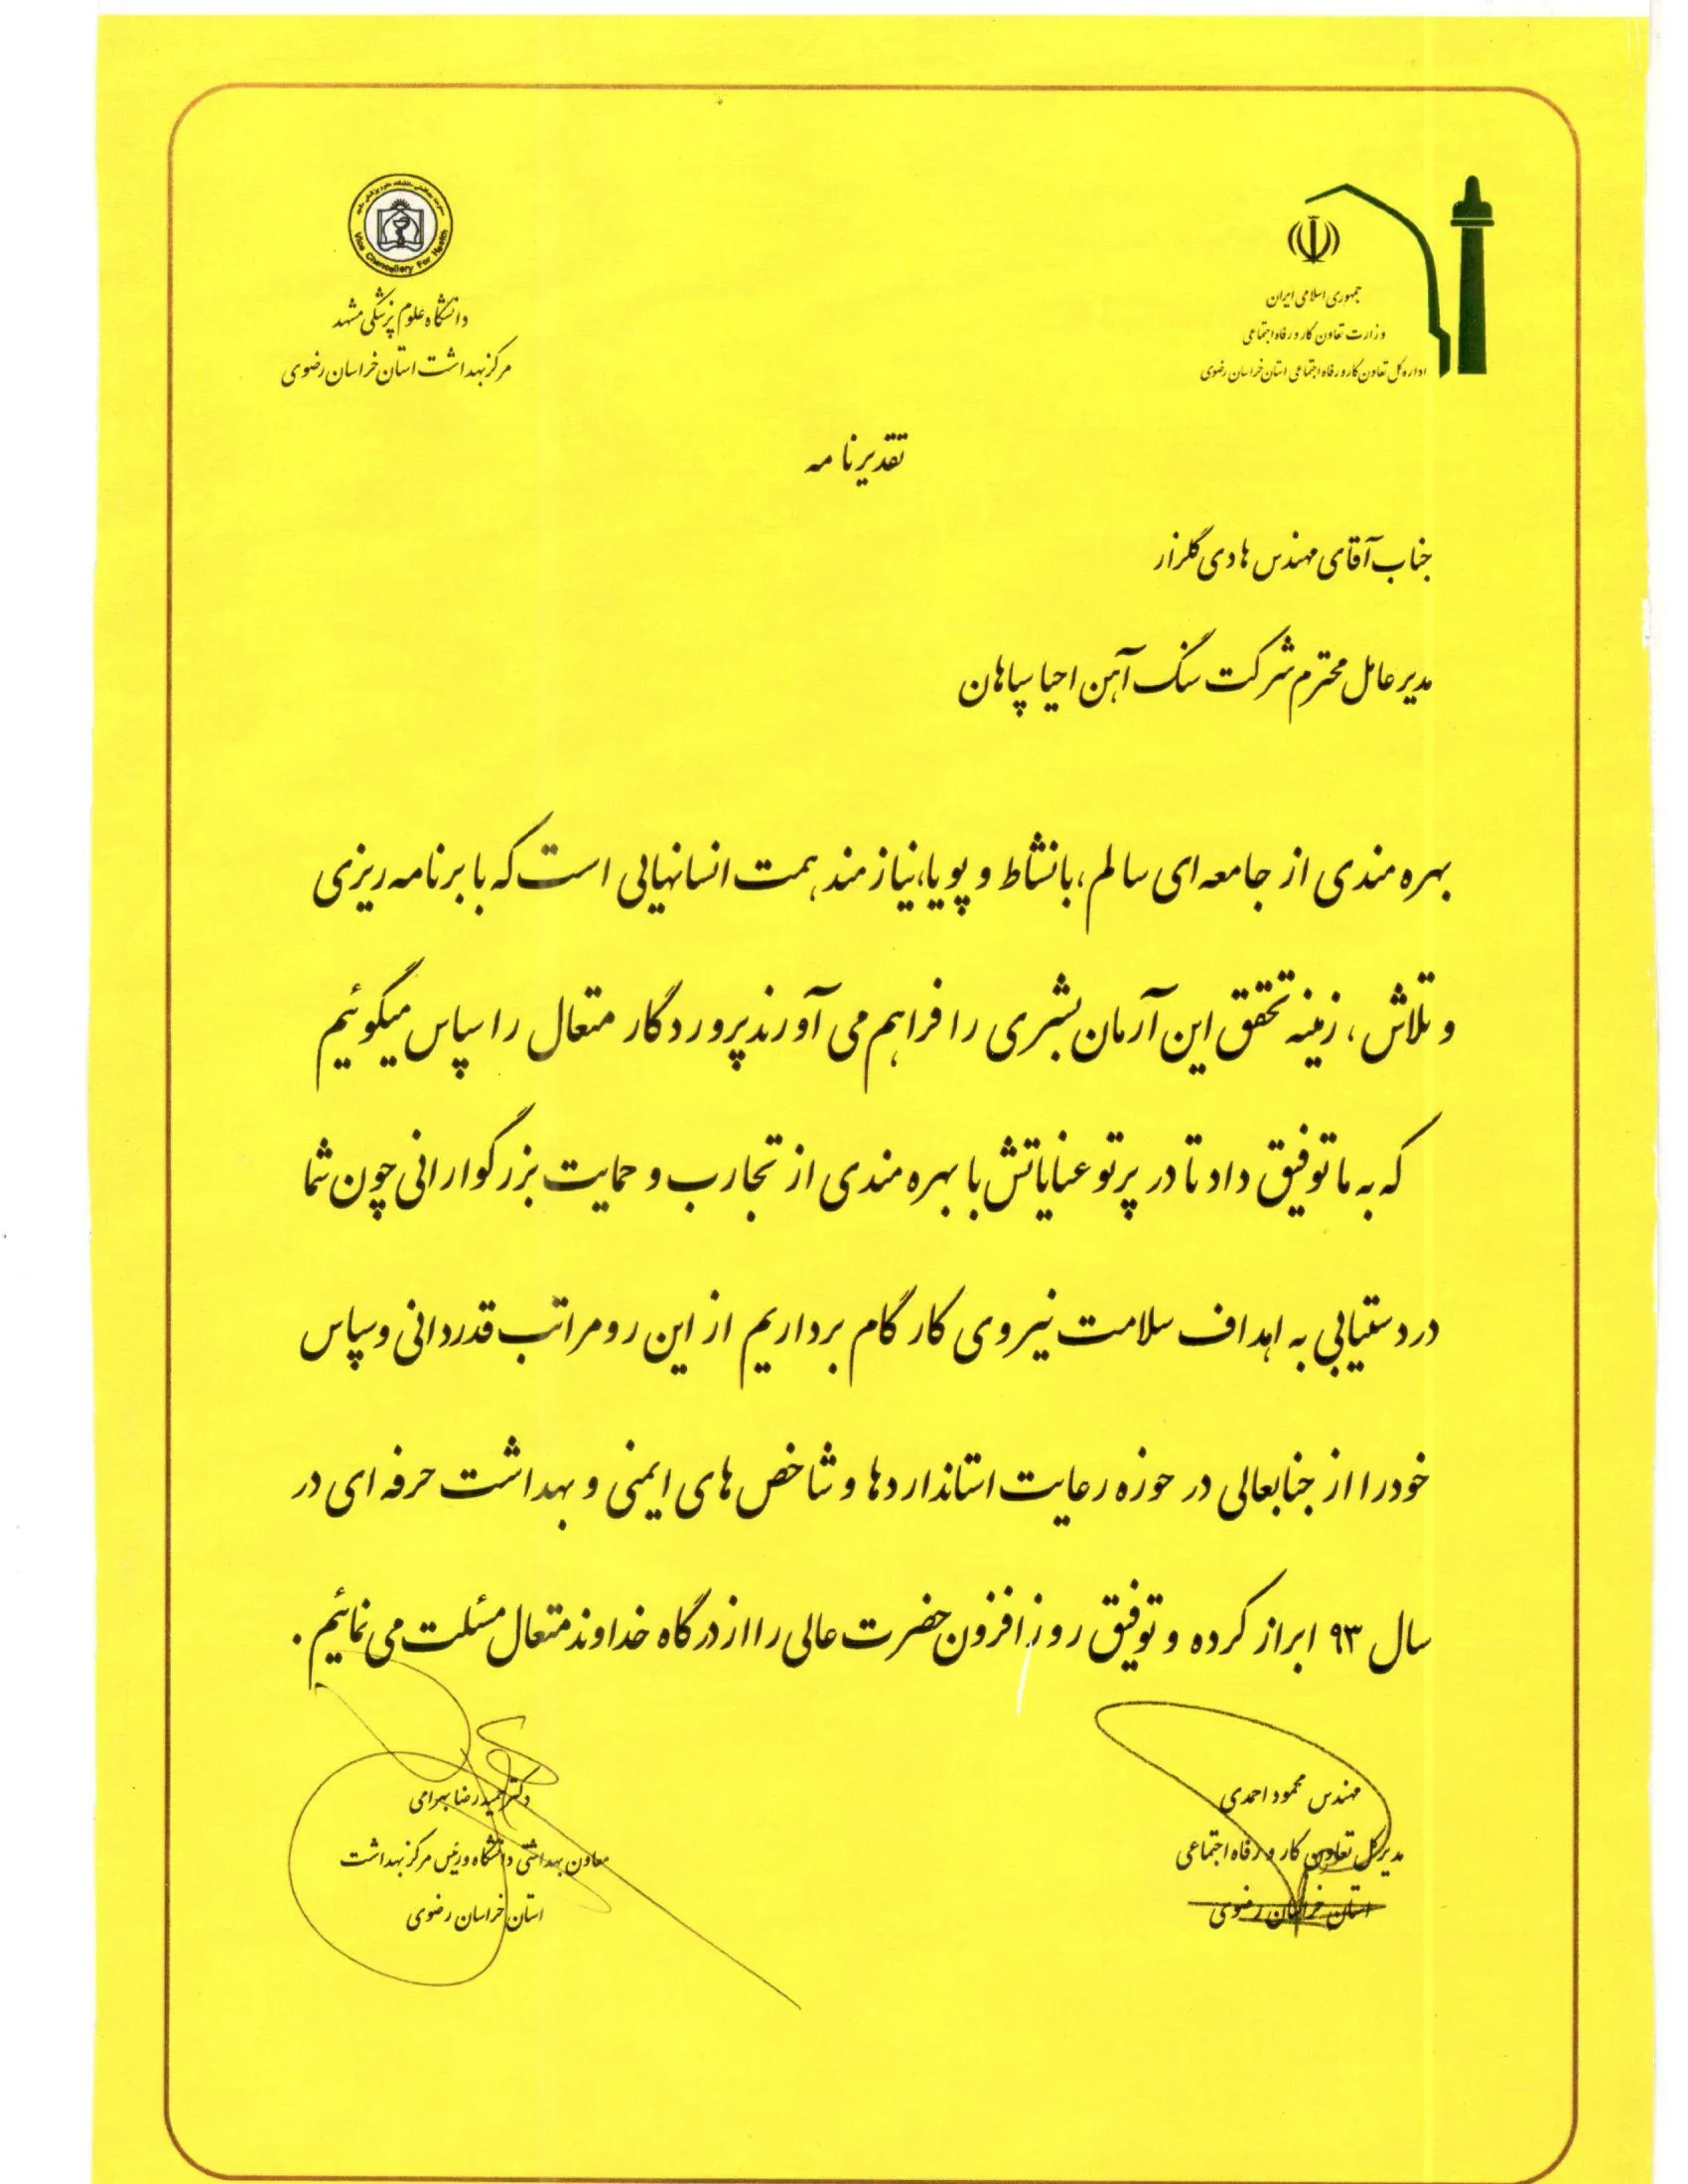 جمهوری اسلامی ایران
وزارت تعاون کار و رفاه اجتماعی
اداره کل تعاون کار و رفاه اجتماعی استان خراسان رضوی
Vice Chancellory For Health
دانشگاه علوم پزشکی مشهد
مرکز بهداشت استان خراسان رضوی
تقدیرنامه
جناب آقای مهندس هادی گلزار
مدیر عامل محترم شرکت سنگ آهن احیا سپاهان
بهره مندی از جامعه ای سالم ،بانشاط و پویا،نیازمند همت انسانهایی است که با برنامه ریزی
و تلاش ، زمینه تحقق این آرمان بشری را فراهم می آورند پروردگار متعال را سپاس میگوئیم
که به ما توفیق داد تا در پرتو عنایاتش با بهره مندی از تجارب و حمایت بزرگوارانی چون شما
در دستیابی به اهداف سلامت نیروی کار گام برداریم از این رو مراتب قدردانی و سپاس
خود را از جنابعالی در حوزه رعایت استانداردها و شاخص های ایمنی و بهداشت حرفه ای در
سال ۹۳ ابراز کرده و توفیق روز افزون حضرت عالی را از درگاه خداوند متعال مسئلت می نمائیم .
مهندس محمود احمدی
مدیرکل تعاون کار و رفاه اجتماعی
استان خراسان رضوی
دکتر حمیدرضا بهرامی
معاون بهداشتی دانشگاه و رئیس مرکز بهداشت
استان خراسان رضوی